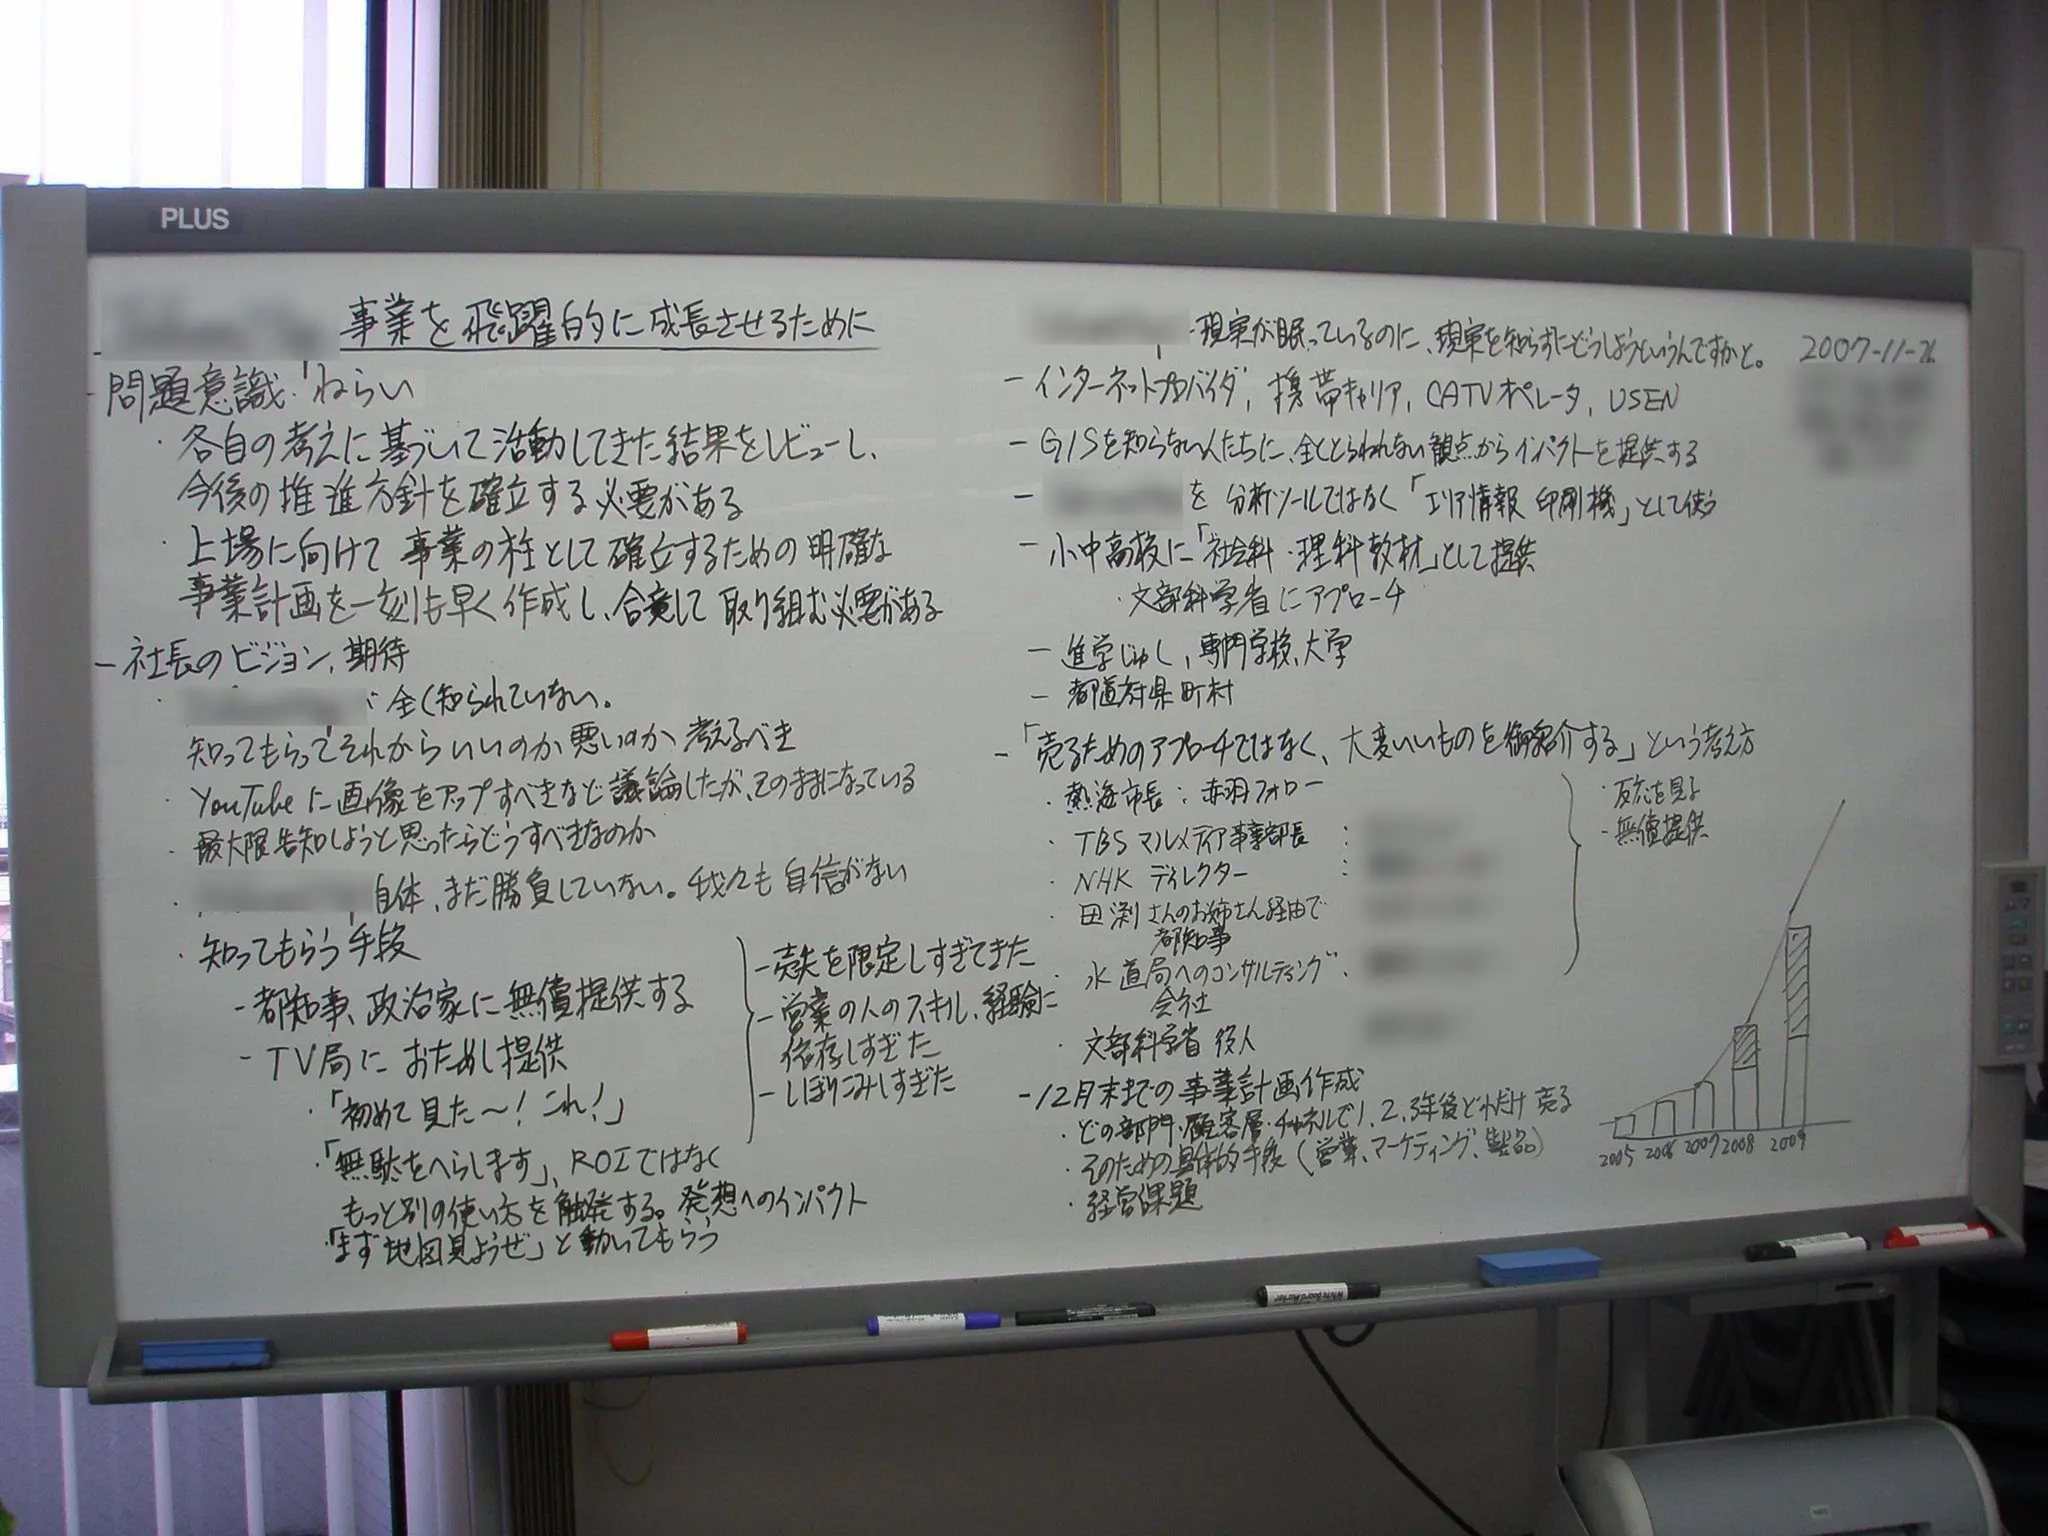 PLUS
事業を飛躍的に成長させるために
- 問題意識・ねらい
・各自の考えに基づいて活動してきた結果をレビューし、
今後の推進方針を確立する必要がある
・上場に向けて事業の柱として確立するための明確な
事業計画を一刻も早く作成し、合意して取り組む必要がある
- 社長のビジョン、期待
全く知られていない。
知ってもらってそれからいいのか悪いのか考えるべき
・YouTubeに画像をアップすべきなど議論したが、そのままになっている
・最大限告知しようと思ったらどうすべきなのか
・自体、まだ勝負していない。我々も自信がない
・知ってもらう手段
- 都知事、政治家に無償提供する
- TV局におためし提供
・「初めて見た〜!これ!」
・「無駄をへらします」、ROIではなく
もっと別の使い方を触発する。発想へのインパクト
・「まず地図見ようぜ」と動いてもらう
- 売先を限定しすぎてきた
- 営業の人のスキル、経験に
依存しすぎた
- しぼりこみしすぎた
・現実が眠っているのに、現実を知らずにどうしようというんですかと。
2007-11-26
- インターネットプロバイダ, 携帯キャリア, CATVオペレータ, USEN
- GISを知らない人たちに、全くとらわれない観点からインパクトを提供する
- を分析ツールではなく「エリア情報 印刷機」として使う
- 小中高校に「社会科・理科教材」として提供
・文部科学省にアプローチ
- 進学じゅく、専門学校、大学
- 都道府県町村
- 「売るためのアプローチではなく、大変いいものを御紹介する」という考え方
・熱海市長:赤羽フォロー
・TBS マルメディア事業部長 :
・NHK ディレクター :
・田渕さんのお姉さん経由で
都知事
・水道局へのコンサルティング
会社
・文部科学省 役人
・反応を見よ
・無償提供
- 12月末までの事業計画作成
・どの部門・顧客層・チャネルで1,2,3年後どれだけ売る
・そのための具体的手段(営業、マーケティング、製品)
・経営課題
2005 2006 2007 2008 2009